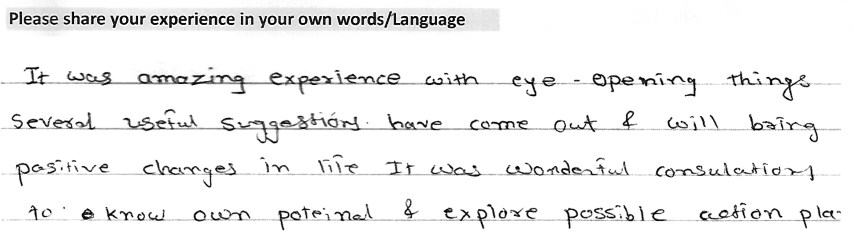 Please share your experience in your own words/Language
It was amazing experience with eye-opening things
Several useful suggestions. have come out & will bring
positive changes in life It was wonderful consulations
to know own poteinal & explore possible action pla